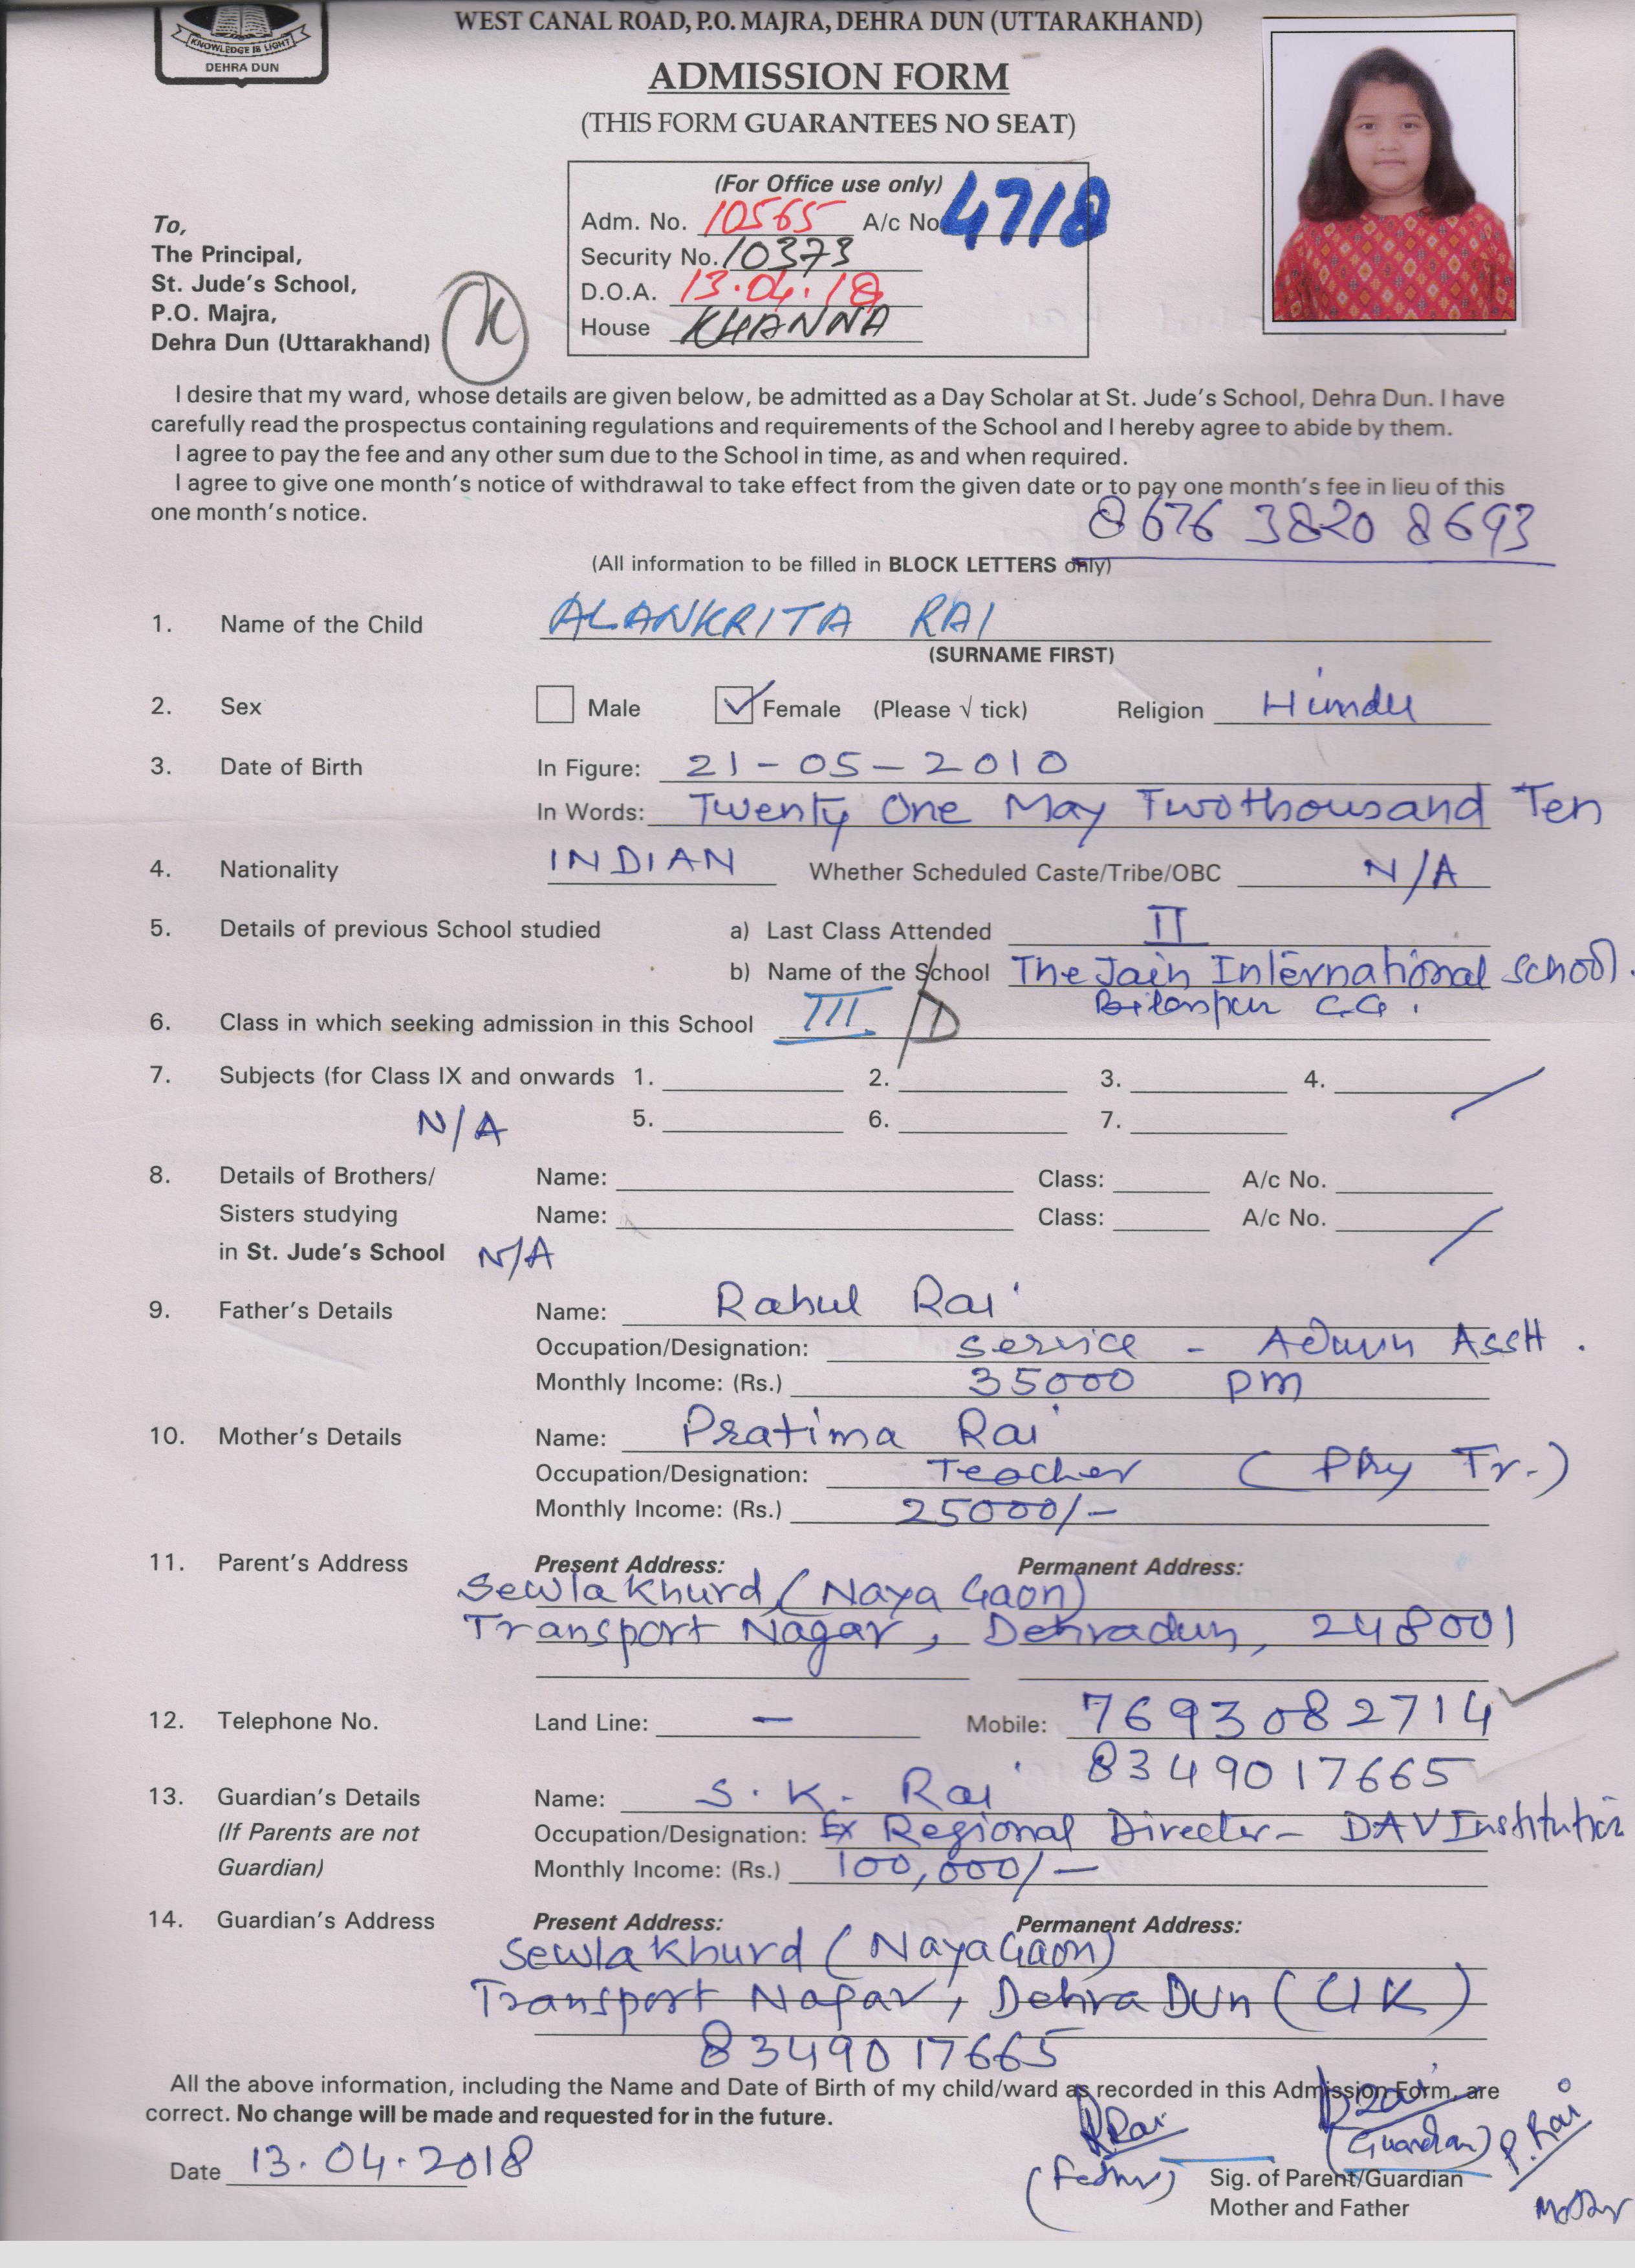 KNOWLEDGE IS LIGHT
DEHRA DUN
WEST CANAL ROAD, P.O. MAJRA, DEHRA DUN (UTTARAKHAND)
ADMISSION FORM
(THIS FORM GUARANTEES NO SEAT)
(For Office use only)
Adm. No. 10565 A/c No 4718
Security No. 10373
D.O.A. 13.04.18
House KHANNA
To,
The Principal,
St. Jude's School,
P.O. Majra,
Dehra Dun (Uttarakhand)
K
I desire that my ward, whose details are given below, be admitted as a Day Scholar at St. Jude's School, Dehra Dun. I have
carefully read the prospectus containing regulations and requirements of the School and I hereby agree to abide by them.
I agree to pay the fee and any other sum due to the School in time, as and when required.
I agree to give one month's notice of withdrawal to take effect from the given date or to pay one month's fee in lieu of this
one month's notice.
8676 3820 8693
(All information to be filled in BLOCK LETTERS only)
1. Name of the Child ALANKRITA RAI
(SURNAME FIRST)
2. Sex Male Female (Please √ tick) Religion Hindu
3. Date of Birth In Figure: 21-05-2010
In Words: Twenty One May Twothousand Ten
4. Nationality INDIAN Whether Scheduled Caste/Tribe/OBC N/A
5. Details of previous School studied a) Last Class Attended II
b) Name of the School The Jain International School.
Bilaspur C.G.
6. Class in which seeking admission in this School III /D
7. Subjects (for Class IX and onwards 1. 2. 3. 4.
N/A 5. 6. 7.
8. Details of Brothers/ Name: Class: A/c No.
Sisters studying Name: Class: A/c No.
in St. Jude's School N/A
9. Father's Details Name: Rahul Rai
Occupation/Designation: Service - Admn Asstt.
Monthly Income: (Rs.) 35000 pm
10. Mother's Details Name: Pratima Rai
Occupation/Designation: Teacher (PRy Tr.)
Monthly Income: (Rs.) 25000/-
11. Parent's Address Present Address: Permanent Address:
Sewla Khurd (Naya Gaon)
Transport Nagar, Dehradun, 248001
12. Telephone No. Land Line: - Mobile: 7693082714
8349017665
13. Guardian's Details Name: S.K. Rai
(If Parents are not Occupation/Designation: Ex Regional Director - DAV Institution
Guardian) Monthly Income: (Rs.) 100,000/-
14. Guardian's Address Present Address: Permanent Address:
Sewla Khurd (Naya Gaon)
Transport Nagar, Dehra Dun (UK)
8349017665
All the above information, including the Name and Date of Birth of my child/ward as recorded in this Admission Form, are
correct. No change will be made and requested for in the future.
RRai P. Rai
(Guardian)
Date 13.04.2018
(Father) Sig. of Parent/Guardian
Mother and Father Mother